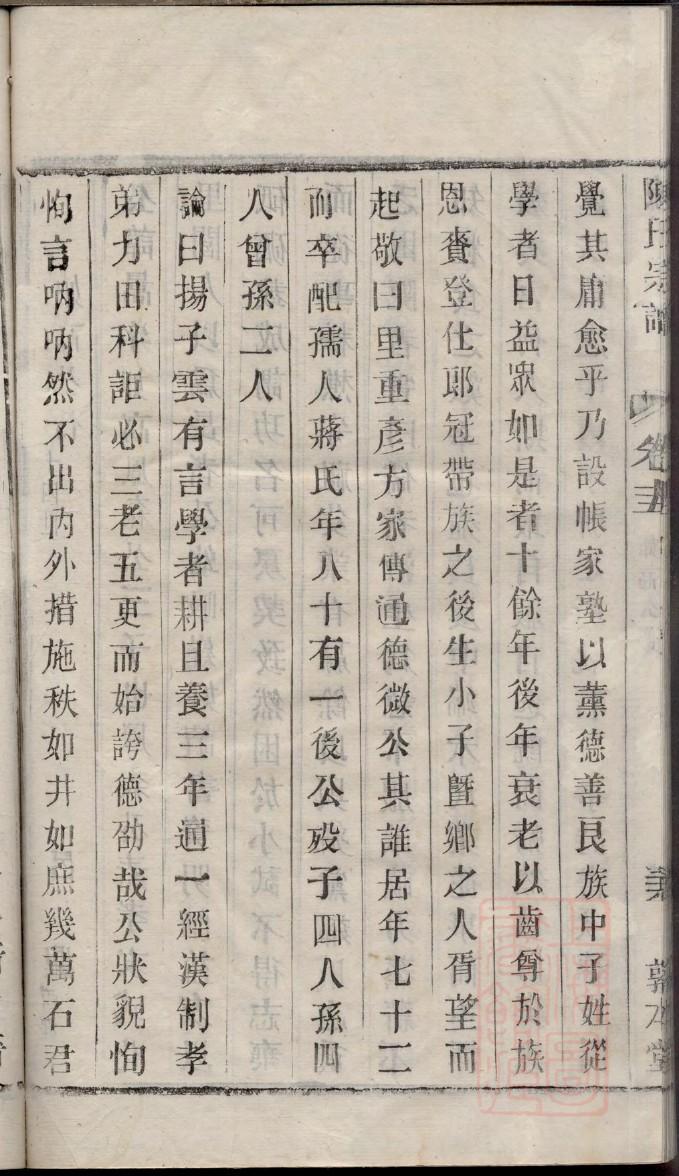 陳氏宗譜 卷五 敦本堂
覺其庸愈乎乃設帳家塾以薰德善良族中子姓從
學者日益眾如是者十餘年後年衰老以齒尊於族
恩賚登仕郎冠帶族之後生小子曁鄉之人胥望而
起敬曰里重彥方家傳通德微公其誰居年七十二
而卒配孺人蔣氏年八十有一後公歿子四人孫四
人曾孫二人
論曰揚子雲有言學者耕且養三年通一經漢制孝
弟力田科詎必三老五更而始誇德劭哉公狀貌恂
恂言吶吶然不出內外措施秩如井如庶幾萬石君